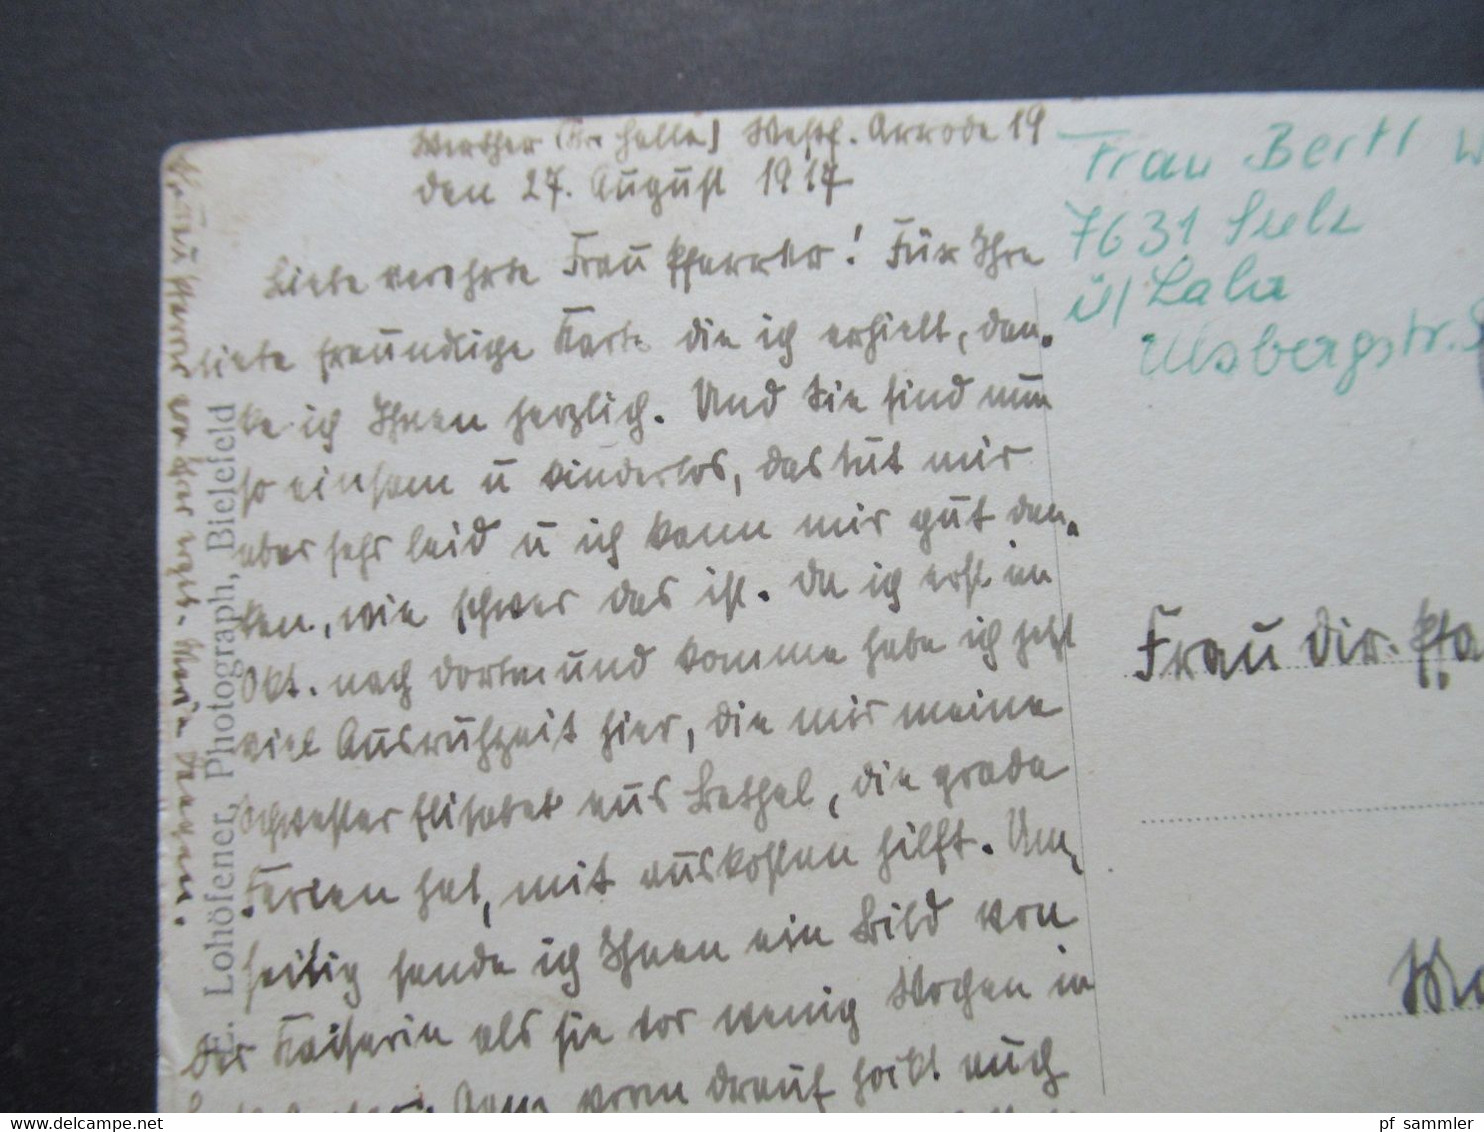 Werther (Kr. Halle) Westf. Arrode 19
den 27. August 1917
Liebe verehrte Frau Pfarrer! Für Ihre
liebe freundliche Karte die ich erhielt, dan-
ke ich Ihnen herzlich. Und Sie sind nun
so einsam u kinderlos, das tut mir
aber sehr leid u ich kann mir gut den-
ken, wie schwer das ist. Da ich erst im
Okt. nach Dortmund komme habe ich jetzt
viel Ausruhzeit hier, die mir meine
Schwester Elisabet aus Bethel, die grade
Ferien hat, mit auskosten hilft. Um-
seitig sende ich Ihnen ein Bild von
der Kaiserin als sie vor wenig Wochen in
Ganz vorn drauf hockt auch
E. Lohöfener, Photograph, Bielefeld
Frau Bertl W
7631 Sulz
ü/ Lahr
Frau Dir. Pfa
pf_sammler